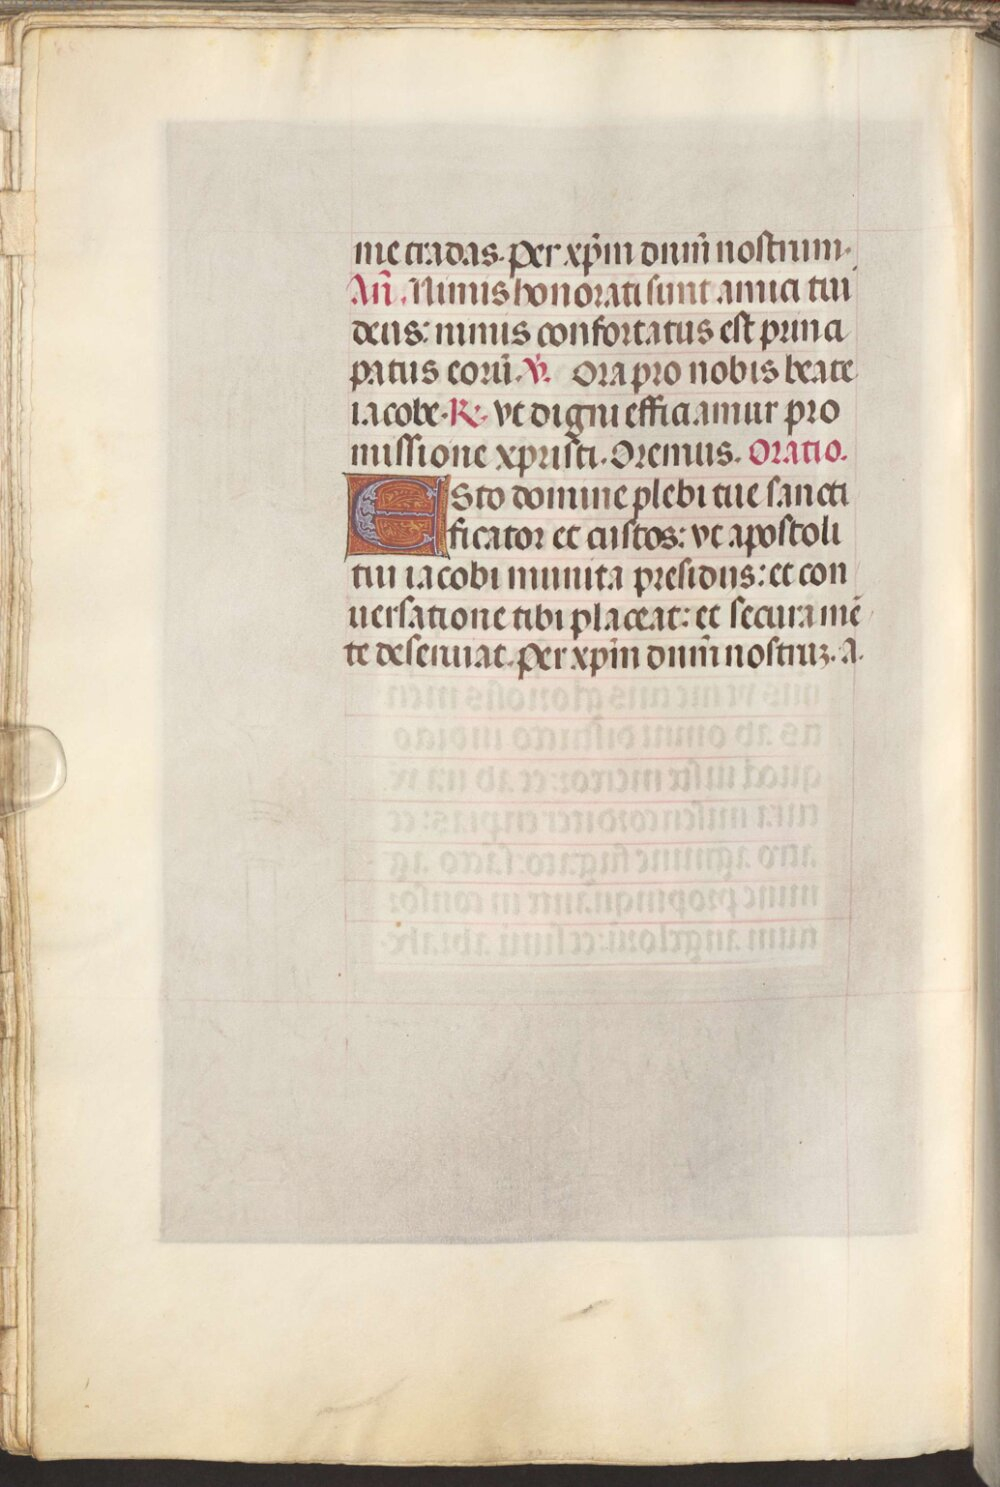 me tradas. Per xp̄m dnm̄ nostrum.
Añ. Nimis honorati sunt amici tui
deus: nimis confortatus est princi
patus eorū. V. Ora pro nobis beate
iacobe. R. vt digni efficiamur pro
missione xpristi. Oremus. Oratio.
ESto domine plebi tue sancti
ficator et custos: vt apostoli
tui iacobi munita presidiis: et con
uersatione tibi placeat: et secura mē
te deseruiat. Per xp̄m dnm̄ nostruꝫ. A.